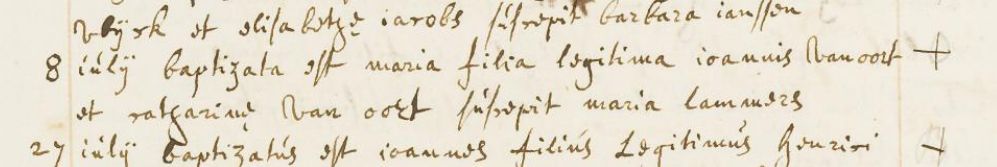 et elisabethę iacobs suscepit barbara ianssen
8 iulij baptizata est maria filia legitima ioannis Van oort +
et catharinę Van oort suscepit maria lammers
27 iulij baptizatus est ioannes filius Legitimus henrici +